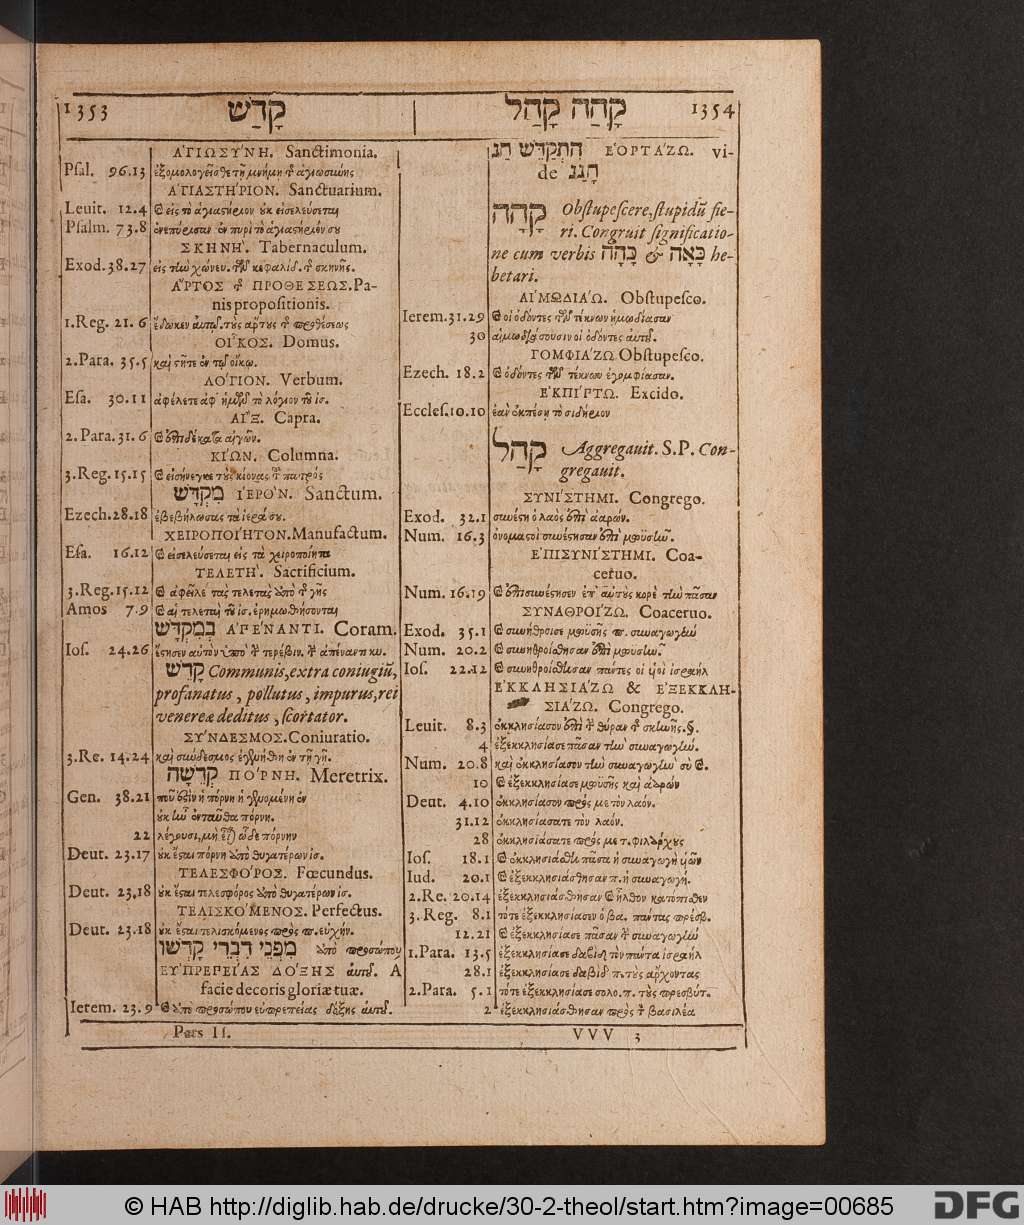 1353 קָדַשׁ קָהַה קָהַל 1354
ἉΓΙΩΣΥΝΗ. Sanctimonia.
Psal. 96.13 ἐξομολογεῖσθε τῇ μνήμῃ τ ἁγιωσύνης
ἉΓΙΑΣΤΗΡΙΟΝ. Sanctuarium.
Leuit. 12.4 ϗ εἰς τὸ ἁγιαστήριον οὐκ εἰσελεύσεται
Psalm. 73.8 ἐνεπύρισαν ἐν πυρὶ τὸ ἁγιαστήριόν σου
ΣΚΗΝΗ. Tabernaculum.
Exod. 38.27 εἰς τὴν χώνευ. τῶν κεφαλίδ. τ σκηνῆς.
ἌΡΤΟΣ τ ΠΡΟΘΕΣΕΩΣ. Pa-
nis propositionis.
1.Reg. 21.6 ἔδωκεν αὐτῷ τοὺς ἄρτους τ προθέσεως
ΟΙΚΟΣ. Domus.
2.Para. 35.5 καὶ στῆτε ἐν τῷ οἴκῳ.
ΛΟΓΙΟΝ. Verbum.
Esa. 30.11 ἀφέλετε ἀφ᾽ ἡμῶν τὸ λόγιον τοῦ ἰσ.
ΑΙΞ. Capra.
2.Para. 31.6 ϗ ἐπιδέκατα αἰγῶν.
ΚΙΩΝ. Columna.
3.Reg. 15.15 ϗ εἰσήνεγκε τοὺς κίονας τ πατρός
מִקְדָּשׁ ἹΕΡΟΝ. Sanctum.
Ezech. 28.18 ἐβεβήλωσας τὰ ἱερά σου.
ΧΕΙΡΟΠΟΙΗΤΟΝ. Manufactum.
Esa. 16.12 ϗ εἰσελεύσεται εἰς τὰ χειροποίητα
ΤΕΛΕΤΗ. Sacrificium.
3.Reg. 15.12 ϗ ἀφεῖλε τὰς τελετὰς ἀπὸ τ γῆς
Amos 7.9 ϗ αἱ τελεταὶ τοῦ ἰσ. ἐρημωθήσονται
בְּמִקְדָּשׁ ἈΠΕΝΑΝΤΙ. Coram.
Ios. 24.26 ἔστησεν αὐτὸν ὑπὸ τ τερέβιν. τ ἀπέναντι κυ.
קָדֵשׁ Communis, extra coniugiū,
profanatus, pollutus, impurus, rei
venereæ deditus, scortator.
ΣΥΝΔΕΣΜΟΣ. Coniuratio.
3.Re. 14.24 καὶ σύνδεσμος ἐγενήθη ἐν τῇ γῇ.
קְדֵשָׁה ΠΟΡΝΗ. Meretrix.
Gen. 38.21 ποῦ ἐστὶν ἡ πόρνη ἡ γενομένη ἐν
οὐκ ἦν ἐνταῦθα πόρνη.
22 λέγουσι, μὴ εἶναι ὧδε πόρνην
Deut. 23.17 οὐκ ἔσται πόρνη ἀπὸ θυγατέρων ἰσ.
ΤΕΛΕΣΦΟΡΟΣ. Fœcundus.
Deut. 23.18 οὐκ ἔσται τελεσφόρος ἀπὸ θυγατέρων ἰσ.
ΤΕΛΙΣΚΟΜΕΝΟΣ. Perfectus.
Deut. 23.18 οὐκ ἔσται τελισκόμενος πρὸς π. εὐχήν.
מִפְּנֵי דִּבְרֵי קָדְשׁוֹ ἀπὸ προσώπου
ΕΥΠΡΕΠΕΙΑΣ ΔΟΞΗΣ αὐτοῦ. A
facie decoris gloriæ tuæ.
Ierem. 23.9 ϗ ἀπὸ προσώπου εὐπρεπείας δόξης αὐτοῦ.
Pars II.
הִתְקַדֵּשׁ חַג ἙΟΡΤΑΖΩ. vi-
de חָגַג
קָהָה Obstupescere, stupidū fie-
ri. Congruit significatio-
ne cum verbis כָּאָה & כָּהָה he-
betari.
ΑΙΜΩΔΙΑΩ. Obstupesco.
Ierem. 31.29 ϗ οἱ ὀδόντες τῶν τέκνων ἡμωδίασαν
30 αἱμωδιάσουσιν οἱ ὀδόντες αὐτοῦ.
ΓΟΜΦΙΑΖΩ Obstupesco.
Ezech. 18.2 ϗ ὀδόντες τῶν τέκνων ἐγομφίασαν.
ἘΚΠΙΠΤΩ. Excido.
Eccles. 10.10 ἐὰν ἐκπέσῃ τὸ σιδήριον
קָהַל Aggregauit. S.P. Con-
gregauit.
ΣΥΝΙΣΤΗΜΙ. Congrego.
Exod. 32.1 συνέστη ὁ λαὸς ἐπὶ ἀαρών.
Num. 16.3 ὀνομαστοὶ συνέστησαν ἐπὶ μωϋσῆν.
ἘΠΙΣΥΝΙΣΤΗΜΙ. Coa-
ceruo.
Num. 16.19 ϗ ἐπισυνέστησεν ἐπ᾽ αὐτοὺς κορὲ τὴν πᾶσαν
ΣΥΝΑΘΡΟΙΖΩ. Coaceruo.
Exod. 35.1 ϗ συνήθροισε μωϋσῆς π. συναγωγὴν
Num. 20.2 ϗ συνηθροίσθησαν ἐπὶ μωϋσῆν.
Ios. 22.12 ϗ συνηθροίσθησαν πάντες οἱ υἱοὶ ἰσραήλ
ἘΚΚΛΗΣΙΑΖΩ & ἘΞΕΚΚΛΗ-
ΣΙΑΖΩ. Congrego.
Leuit. 8.3 ἐκκλησίασον ἐπὶ τ θύραν τ σκηνῆς. §.
4 ἐξεκκλησίασε πᾶσαν τὴν συναγωγήν.
Num. 20.8 καὶ ἐκκλησίασον τὴν συναγωγὴν σὺ ϗ.
10 ϗ ἐξεκκλησίασε μωϋσῆς καὶ ἀαρών
Deut. 4.10 ἐκκλησίασον πρός με τὸν λαόν.
31.12 ἐκκλησιάσατε τὸν λαόν.
28 ἐκκλησιάσατε πρός με τ. φιλάρχους
Ios. 18.1 ϗ ἐκκλησιάσθη πᾶσα ἡ συναγωγὴ υἱῶν
Iud. 20.1 ϗ ἐξεκκλησιάσθησαν π. ἡ συναγωγή.
2.Re. 20.14 ἐξεκκλησιάσθησαν ϗ ἦλθον κατόπισθεν
3.Reg. 8.1 τότε ἐξεκκλησίασεν ὁ βα. πάντας πρέσβ.
12.21 ϗ ἐξεκκλησίασε πᾶσαν τ συναγωγὴν
1.Para. 13.5 ἐξεκκλησίασε δαβὶδ τὸν πάντα ἰσραήλ
28.1 ἐξεκκλησίασε δαβὶδ π. τοὺς ἄρχοντας
2.Para. 5.1 τότε ἐξεκκλησίασε σολο. π. τοὺς πρεσβυτ.
2 ἐξεκκλησιάσθησαν πρὸς τ βασιλέα
VVV 3
© HAB http://diglib.hab.de/drucke/30-2-theol/start.htm?image=00685 DFG